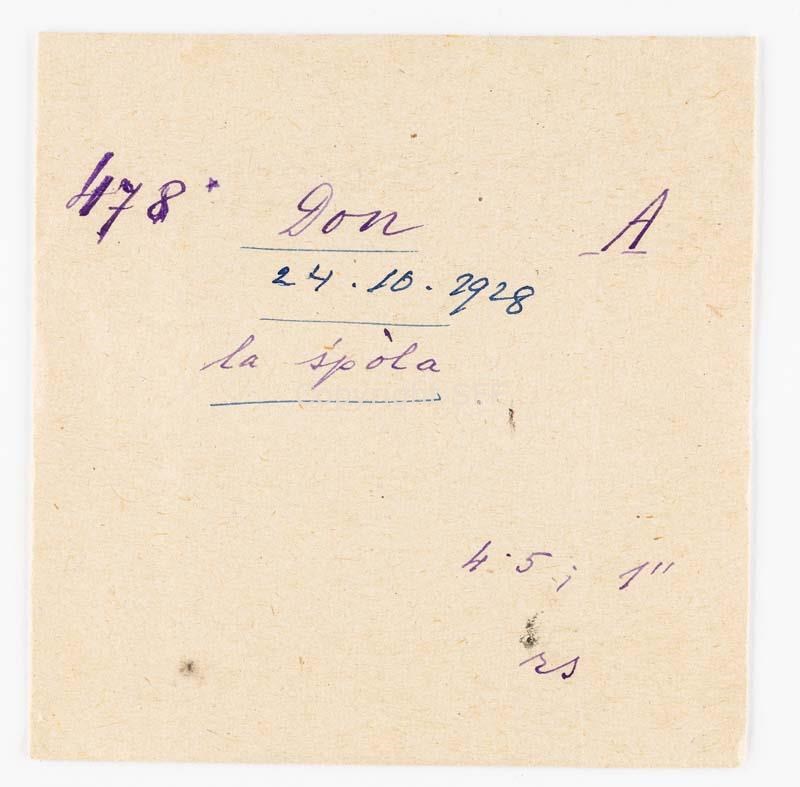 478* Don A
24.10.1928
la śpòla
4.5; 1"
rs